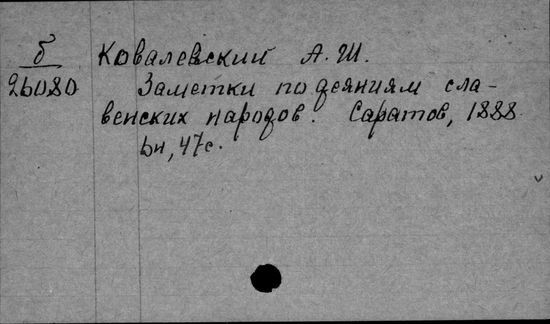 б Ковалевский А. Ш.
26080 Заметки по деяниям сла-
венских народов. Саратов, 1888
bн, 47 с.